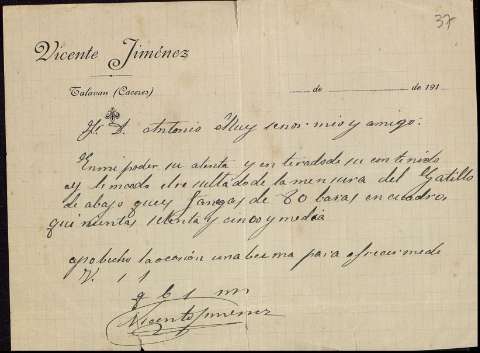 37
Vicente Jiménez
Talavan (Caceres)
de de 191
Sr. D. Antonio Muy señor mio y amigo:
En mi poder su atenta y enterado de su contenido
el resultado de la mensura del Gatillo
de abajo que y fangas de 60 baras en cuadros
quinientas setenta y cinco y media
apobecho la ocasión una bes mas para ofrecerme de
V. s s
q b s m
Vicente Jimenez